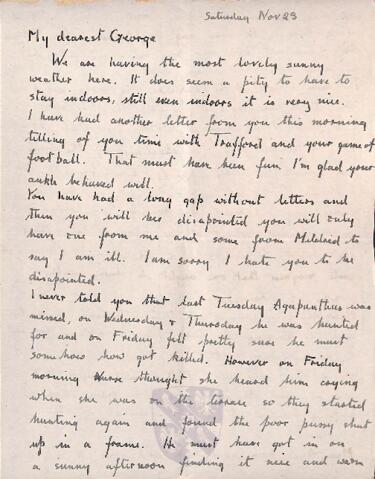 Saturday Nov 29
My dearest George
We are having the most lovely sunny
weather here. It does seem a pity to have to
stay indoors, still even indoors it is very nice.
I have had another letter from you this morning
telling of you time with Trafford and your game of
football. That must have been fun. I'm glad your
ankle behaved well.
You have had a long gap without letters and
then you will be disapointed you will only
have one from me and some from Mildred to
say I am ill. I am sorry I hate you to be
disapointed.
I never told you that last Tuesday Agapanthus was
missed, on Wednesday & Thursday he was hunted
for and on Friday felt pretty sure he must
somehow have got killed. However on Friday
morning Nurse thought she heard him crying
when she was on the terrace so they started
hunting again and found the poor pussy shut
up in a frame. He must have got in on
a sunny afternoon finding it nice and warm